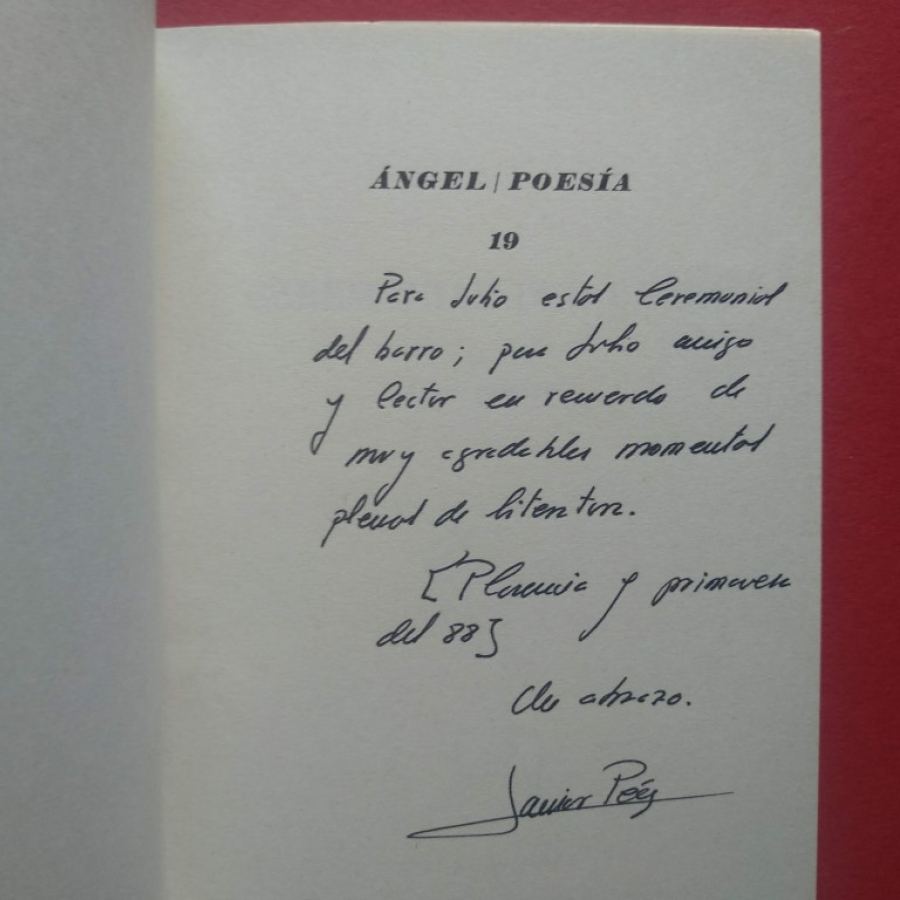 ÁNGEL | POESÍA
19
Para Julio estos Ceremonial
del barro; para Julio amigo
y lector en recuerdo de
muy agradables momentos
plenos de literatura.
[Plasencia y primavera
del 88]
Un abrazo.
Javier